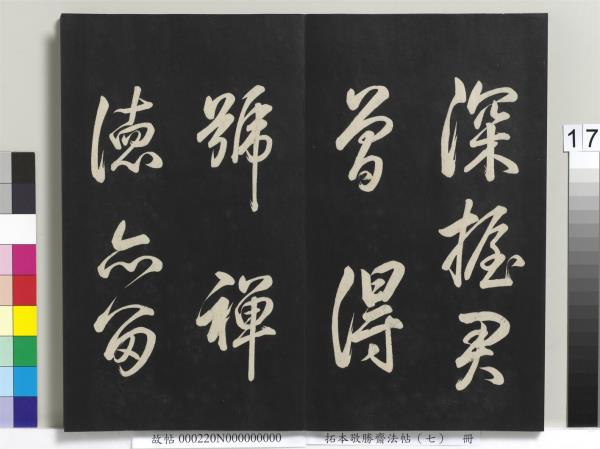 深握君
曾得
號禪
德亦留
故帖 000220N000000000 拓本敬勝齋法帖(七) 冊
17